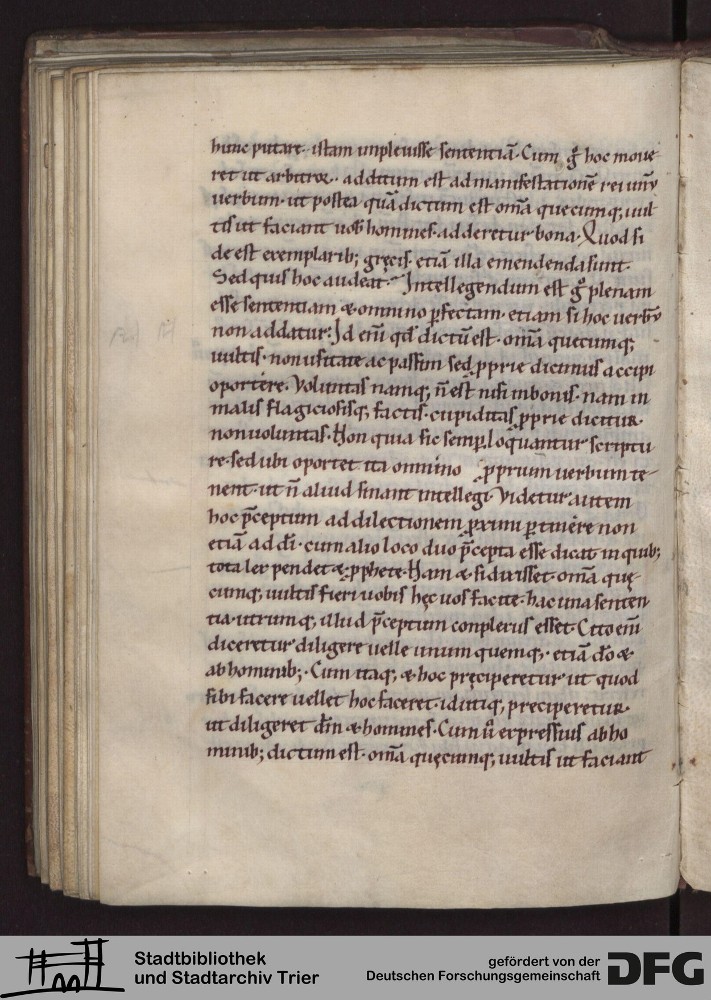 hunc putare· istam impleuisse sententiā· Cum g̊ hoc moue
ret ut arbitror· additum est ad manifestationē rei
uerbum· ut postea quā dictum est· om̄a quecumq; uul
tis ut faciant uob̄ homines· adderetur bona· Quod si
de est exemplarib; gręcis· etiā illa emendenda sunt·
Sed quis hoc audeat· Intellegendum est g̊ plenam
esse sententiam & omnino ꝑfectam· etiam si hoc uerbū
non addatur· Id eni̅ qd̄ dictū est· om̄a quecumq;
uultis· non usitate ac passim sed ꝓprie dictum accipi
oportere· Voluntas namq; n̄ est nisi in bonis· nam in
malis flagiciosisq; factis· cupiditas ꝓprie dicitur
non uoluntas· Non quia sic semꝑ loquantur scriptu
re· sed ubi oportet ita omnino ꝓprium uerbum te
nent· ut n̄ aliud sinant intellegi· Videtur autem
hoc p̄ceptum ad dilectionem ꝓximi ꝑtinere non
etiā ad dī· cum alio loco duo p̄cepta esse dicat in quib;
tota lex pendet & ꝓphete· Nam & si dixisset· om̄a quę
cumq; uultis fieri uobis hęc uos facite· hac una senten
tia utrumq; illud p̄ceptum conplexus esset· Cito eni̅
diceretur diligere uelle unum quemq;· etiā do̅ &
ab hominib;· Cum itaq; & hoc pręciperetur ut quod
sibi facere uellet hoc faceret· id utiq; preciperetur
ut diligeret dm̄ & homines· Cum u̅ expressius ab ho
minib; dictum est· om̄a quęcumq; uultis ut faciant
Stadtbibliothek
und Stadtarchiv Trier
gefördert von der
Deutschen Forschungsgemeinschaft
DFG